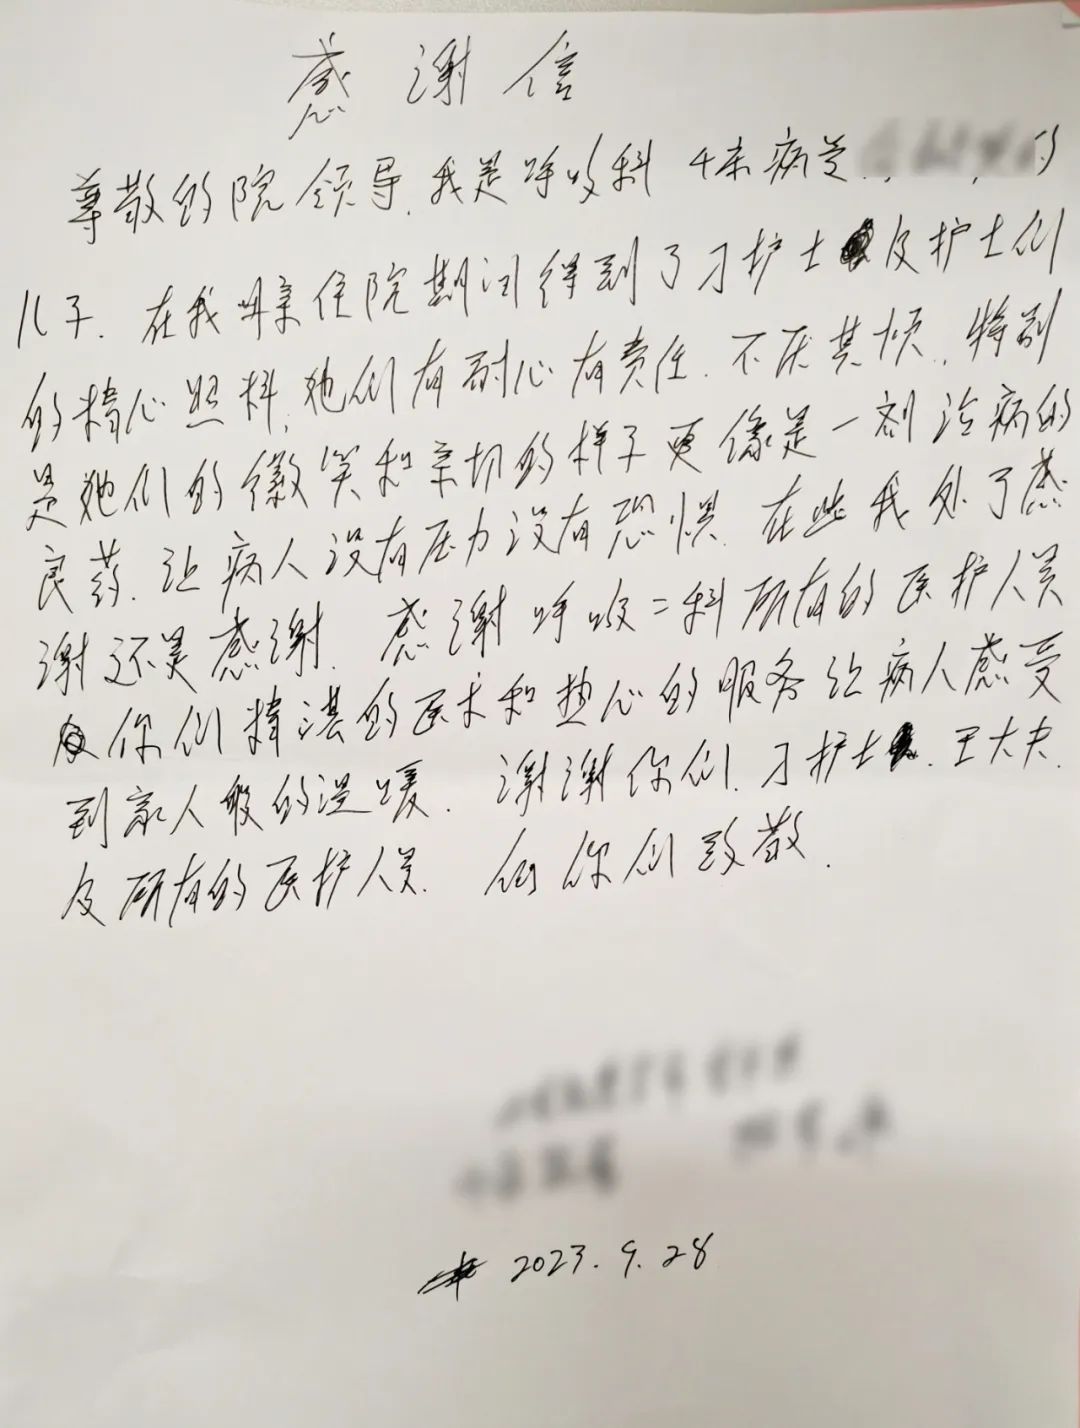 感谢信
尊敬的院领导.我是呼吸科4床病号.的
儿子.在我母亲住院期间得到了刁护士及护士们
的精心照料,她们有耐心有责任.不厌其烦.特别
是她们的微笑和亲切的样子更像是一剂治病的
良药.让病人没有压力没有恐惧.在此我处了感
谢还是感谢.感谢呼吸二科所有的医护人员
你们精湛的医术和热心的服务让病人感受
到家人般的温暖.谢谢你们.刁护士.王大夫.
及所有的医护人员.向你们致敬.
2023.9.28